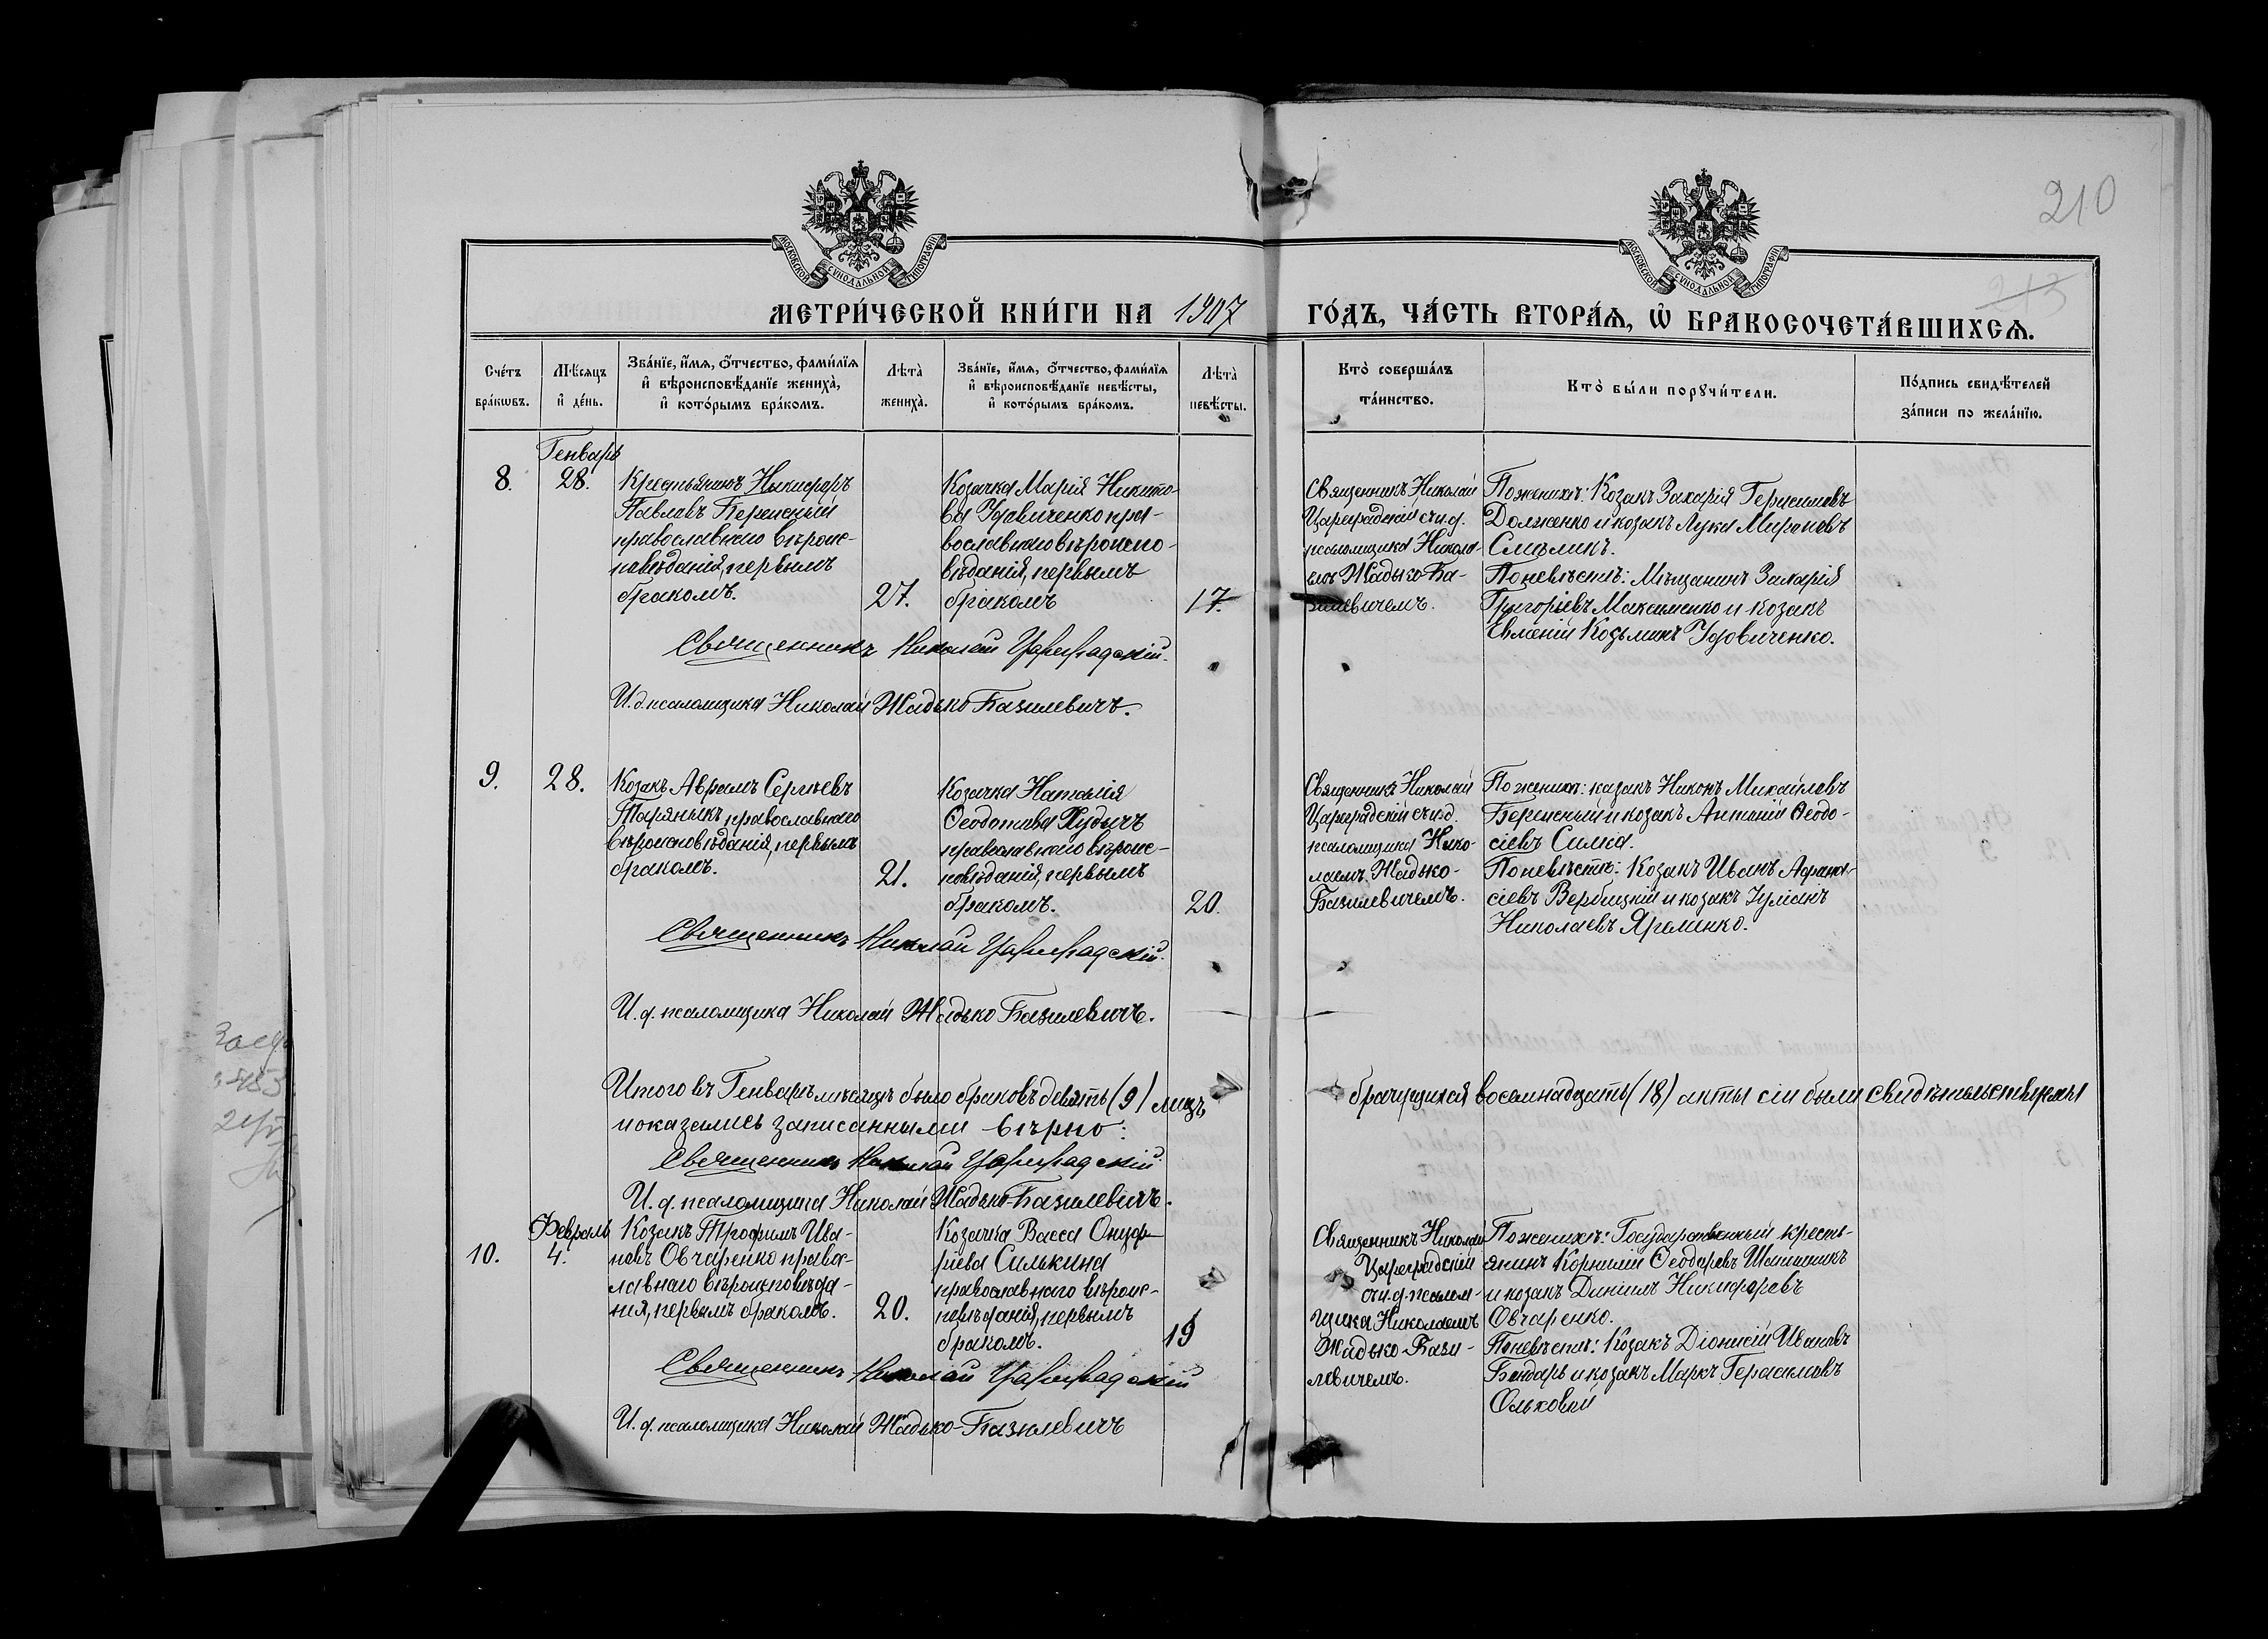 210
213
МОСКОВСКОЙ СѴНОДАЛЬНОЙ ТИПОГРАФІИ
МОСКОВСКОЙ СѴНОДАЛЬНОЙ ТИПОГРАФІИ
МЕТРИ́ЧЕСКОЙ КНИ́ГИ НА 1907 ГО́ДЪ, ЧА́СТЬ ВТОРА́Ѧ, Ѡ҆ БРАКОСОЧЕТА́ВШИХСѦ.
Сче́тъ
бра́кѡвъ.
Мѣ́сѧцъ
и҆ де́нь.
Зва́нїе, и҆́мѧ, ѻ҆́тчество, фами́лїѧ
и҆ вѣроисповѣ́данїе жениха̀,
и҆ кото́рымъ бра́комъ.
Лѣта̀
жениха̀.
Зва́нїе, и҆́мѧ, ѻ҆́тчество, фами́лїѧ
и҆ вѣроисповѣ́данїе невѣ́сты,
и҆ кото́рымъ бра́комъ.
Лѣта̀
невѣ́сты.
Кто̀ соверша́лъ
та́инство.
Кто̀ бы́ли порꙋчи́тели.
По́дпись свидѣ́телей
за́писи по жела́нїю.
Генварь
8.
28.
Крестьянинъ Никифоръ
Павловъ Бережный
православнаго вѣроис-
повѣданія, первымъ
бракомъ.
27.
Козачка Марія Никито-
ва Удовиченко пра-
вославнаго вѣроиспо-
вѣданія, первымъ
бракомъ
17.
Священникъ Николай
Цареградскій съ и.д.
псаломщика Никола-
емъ Жадько-Ба-
зилевичемъ.
По женихѣ: Козакъ Захарія Герасимовъ
Долженко и козакъ Лука Мироновъ
По невѣстѣ: Мѣщанинъ Захарія
Григоріевъ Максименко и козакъ
Евменій Козьминъ Удовиченко.
Священникъ Николай Цареградскій.
И. д. псаломщика Николай Жадько Базилевичъ.
9.
28.
Козакъ Аврамъ Сергѣевъ
Тараныкъ православнаго
вѣроисповѣданія, первымъ
бракомъ.
21.
Козачка Наталія
Ѳеодотова Худычъ
православнаго вѣроис-
повѣданія, первымъ
бракомъ.
20.
Священникъ Николай
Цареградскій съ и.д.
псаломщика Нико-
лаемъ Жадько-
Базилевичемъ.
По женихѣ: казакъ Никонъ Михайловъ
Бережный и козакъ Антоній Ѳеодо-
сіевъ Силка.
По невѣстѣ: Козакъ Иванъ Аѳана-
сіевъ Вербицкій и козакъ Іуліанъ
Николаевъ Яременко.
Священникъ Николай Цареградскій.
И. д. псаломщика Николай Жадько Базилевичъ.
Итого въ Генварѣ мѣсяцѣ было браковъ девять (9) лицъ брачущихся восемнадцать (18) акты сіи были свидѣтельствуемы
и оказались записанными вѣрно:
Священникъ Николай Цареградскій
И. д. псаломщика Николай Жадько-Базилевичъ.
Февраль
10.
4.
Козакъ Трофимъ Ива-
новъ Овчаренко правос-
лавнаго вѣроисповѣда-
нія, первымъ бракомъ.
20.
Козачка Васса Онуф-
ріева Силькина
православнаго вѣроис-
повѣданія, первымъ
бракомъ.
19
Священникъ Николай
Цареградскій
съ и.д. псалом-
щика Николаемъ
Жадько-Бази-
левичемъ.
По женихѣ: Государственный кресть-
янинъ Корнилій Ѳеодоровъ
и козакъ Даніилъ Никифоровъ
Овчаренко.
По невѣстѣ: Козакъ Діонисій Ивановъ
Бондарь и козакъ Маркъ Герасимовъ
Ольховый
Священникъ Николай Цареградскій
И. д. псаломщика Николай Жадько-Базилевичъ